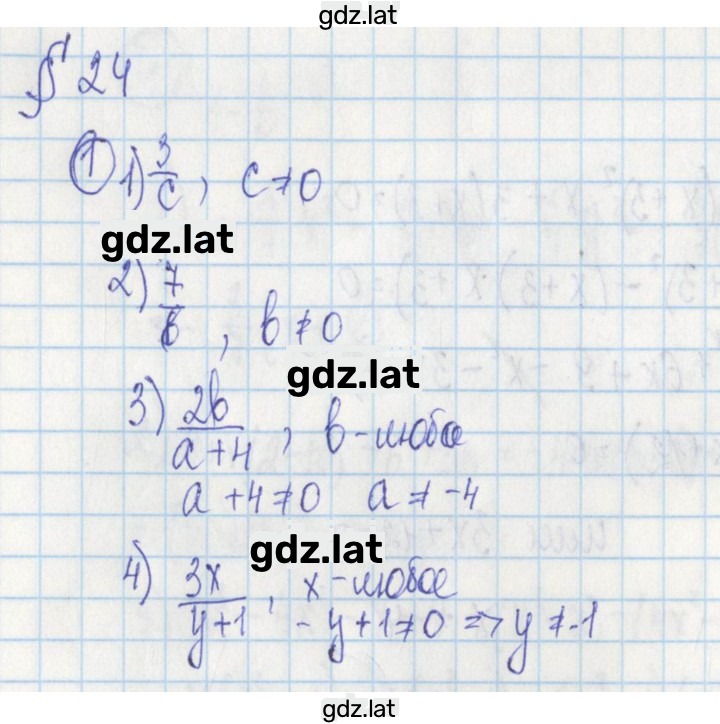 gdz.lat
§ 24
① 1) 3/c, c ≠ 0
gdz.lat
2) 7/в, в ≠ 0
gdz.lat
3) 2b/a+4, в - любое
a + 4 ≠ 0 a ≠ -4
gdz.lat
4) 3x/y+1, x - любое
- y + 1 ≠ 0 => y ≠ -1
gdz.lat